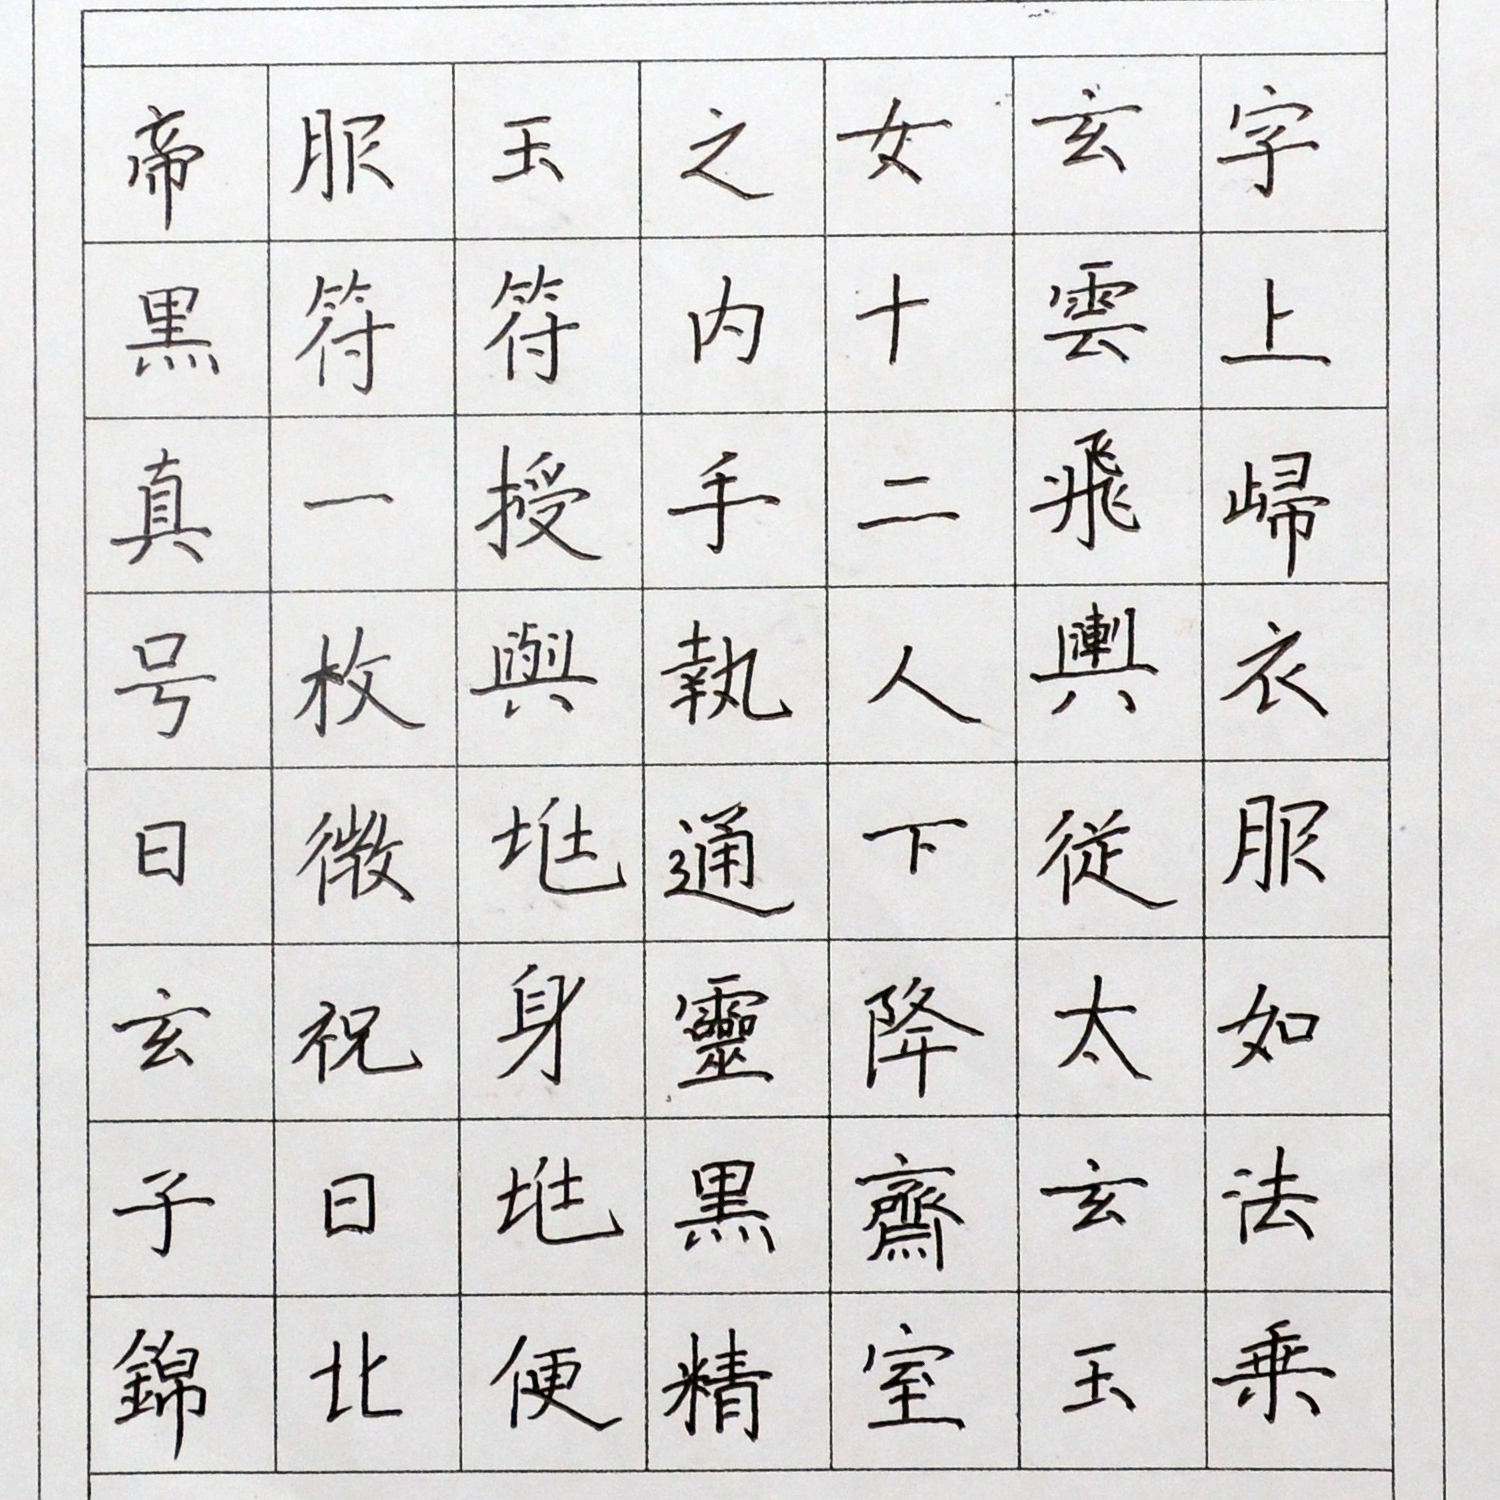 字上㱕衣服如法乗
玄雲飛輿従太玄玉
女十二人下降齋室
之内手執通靈黒精
玉符授與兆身兆便
服符一枚微祝曰北
帝黒真号曰玄子錦